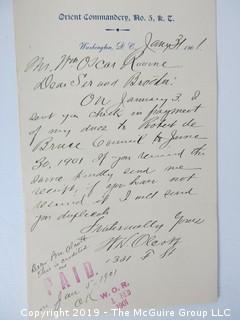 Orient Commandery, No. 5, K. T.
Washington, D. C. Jany 31 1901
Mr. Wm Oscar Roome
Dear Sir and Brother:
On January 3, I
sent you check in payment
of my dues to Robert de
Bruce Council to June
30, 1901 if you received the
same kindly send me
receipt, if you have not
received it I will send
you duplicate
Fraternally Yours
W. Olcott
1321 F St
Dear
this is credited
PAID.
Jan 5 - 1901
OK
W. O. R.
1901
Copyright 2019 - The McGuire Group LLC